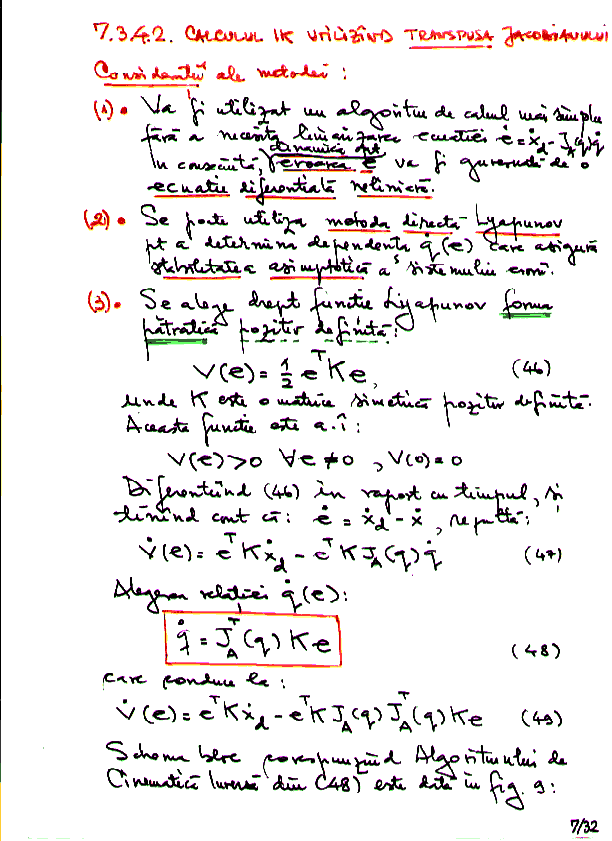 7.3.4.2. CALCULUL IK UTILIZÎND TRANSPUSA JACOBIANULUI
Considerații ale metodei :
(1) • Va fi utilizat un algoritm de calcul mai simplu
fără a necesita liniarizarea ecuației ė = ẋd - JA(q)q̇
dinamica pt.
În consecință, eroarea e va fi guvernată de o
ecuație diferențială neliniară.
(2) • Se poate utiliza metoda directă Lyapunov
pt a determina dependența q̇(e) care asigură
stabilitatea asimptotică a sistemului erorii.
(3) • Se alege drept funcție Lyapunov forma
pătratică pozitiv definită:
V(e) = 1/2 eᵀKe, (46)
unde K este o matrice simetrică pozitiv definită.
Această funcție este a.î :
V(e)>0 ∀e ≠ 0 , V(0) = 0
Diferențiind (46) în raport cu timpul, și
ținînd cont că: ė = ẋd - ẋ , rezultă:
V̇(e) = eᵀKẋd - eᵀKJA(q)q̇ (47)
Alegerea relației q̇(e):
q̇ = JAᵀ(q) Ke (48)
care conduce la :
V̇(e) = eᵀKẋd - eᵀKJA(q)JAᵀ(q)Ke (49)
Schema bloc corespunzînd Algoritmului de
Cinematică Inversă din (48) este dată în fig. 9:
7/32